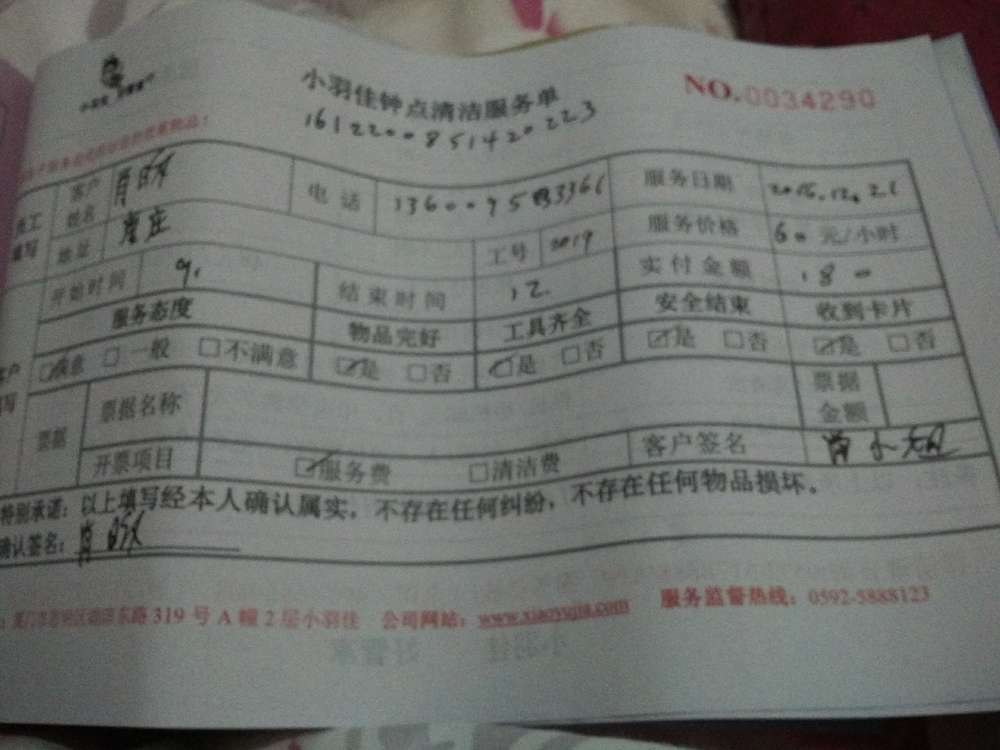 小羽佳钟点清洁服务单
NO.0034290
1612200851420223
客户姓名 肖 电话 服务日期 2016.12.21
地址 工号 2019 服务价格 60 元/小时
开始时间 9. 结束时间 12. 实付金额 180
服务态度 物品完好 工具齐全 安全结束 收到卡片
☑满意 □一般 □不满意 ☑是 □否 ☑是 □否 ☑是 □否 ☑是 □否
票据 票据名称 票据金额
开票项目 ☑服务费 □清洁费 客户签名 肖小
特别承诺：以上填写经本人确认属实，不存在任何纠纷，不存在任何物品损坏。
确认签名：肖
东路 319 号 A 幢 2 层小羽佳 公司网站：www.xiaoyujia.com 服务监督热线：0592-5888123